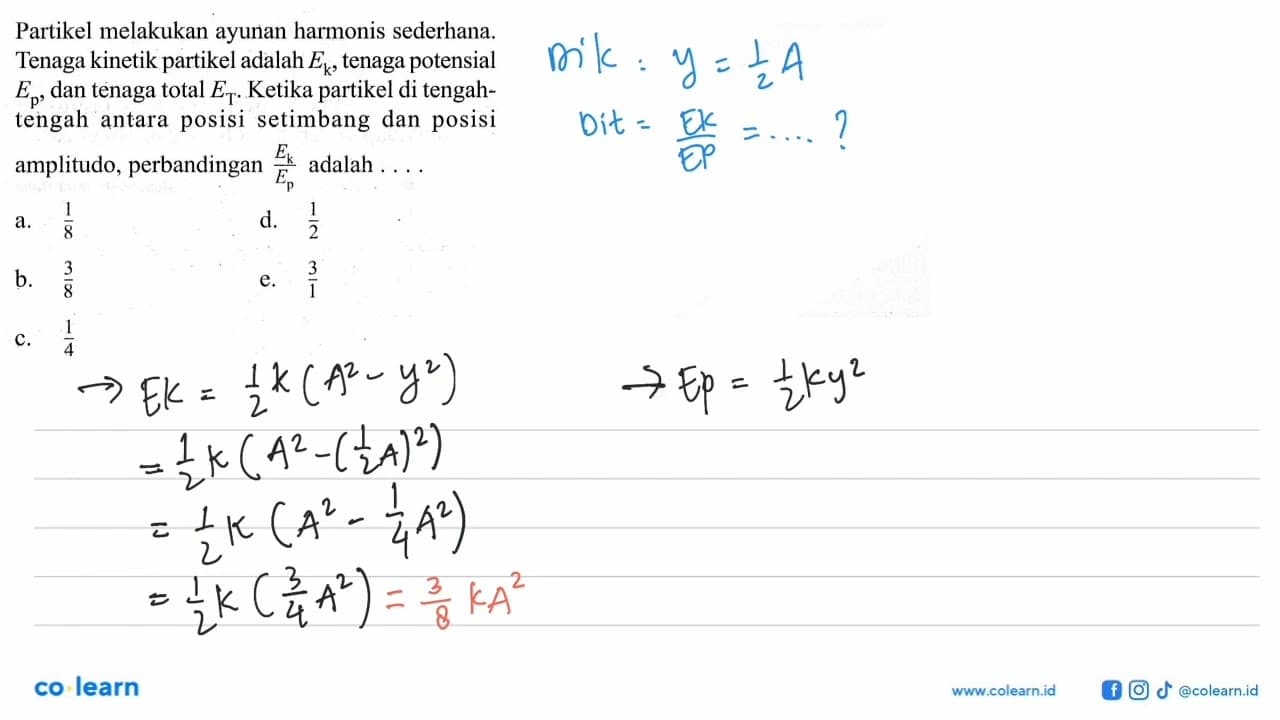 Partikel melakukan ayunan harmonis sederhana.
Tenaga kinetik partikel adalah E_k, tenaga potensial
E_p, dan tenaga total E_T. Ketika partikel di tengah-
tengah antara posisi setimbang dan posisi
amplitudo, perbandingan E_k/E_p adalah . . . .
a. 1/8 d. 1/2
b. 3/8 e. 3/1
c. 1/4
Dik : y = 1/2 A
Dit = EK/EP = .... ?
→ EK = 1/2 k (A² - y²)
= 1/2 k (A² - (1/2 A)²)
= 1/2 k (A² - 1/4 A²)
= 1/2 k (3/4 A²) = 3/8 kA²
→ Ep = 1/2 ky²
co learn
www.colearn.id
@colearn.id